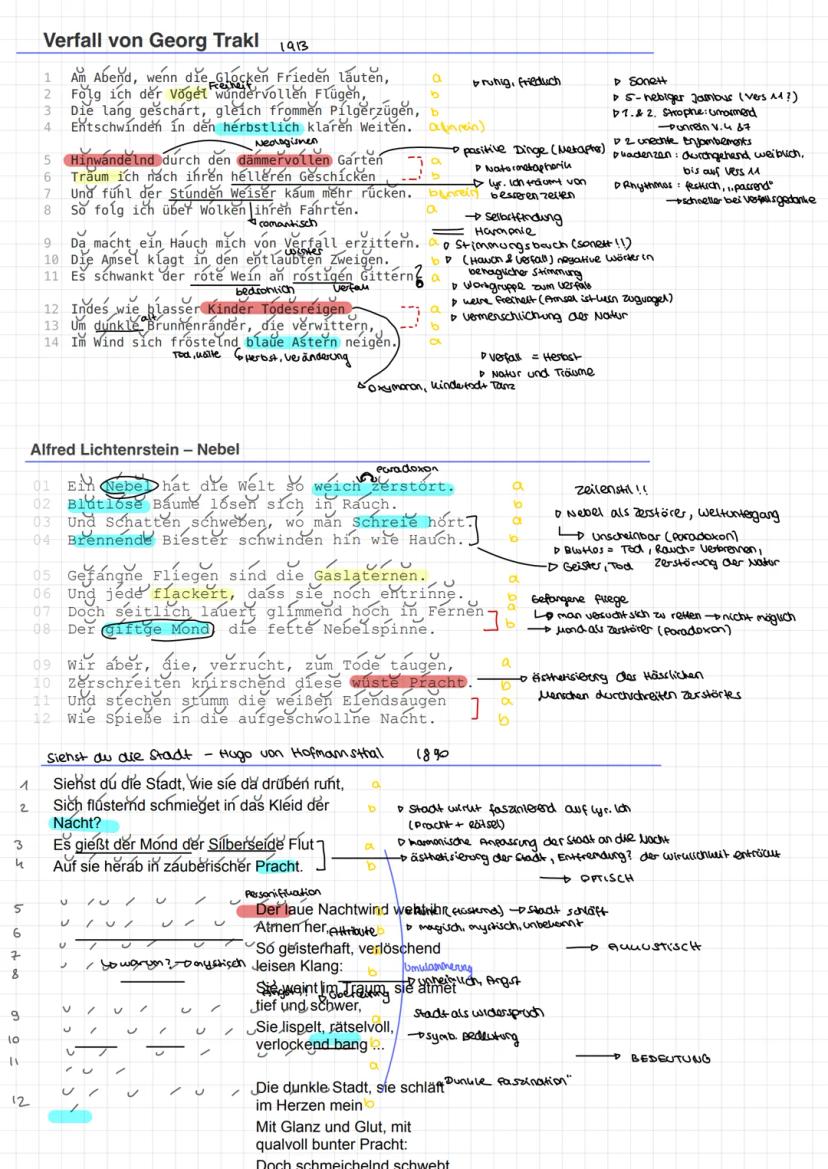 Verfall von Georg Trakl 1913
1 Am Abend, wenn die Glocken Frieden läuten, a
▹ ruhig, friedlich
▹ Sonett
Freiheit
2 Folg ich der Vögel wundervollen Flügen, b
▹ 5-hebiger Jambus (Vers 11?)
3 Die lang geschart, gleich frommen Pilgerzügen, b
▹ 1. & 2. Strophe: umarmend
4 Entschwinden in den herbstlich klaren Weiten. a (unrein)
→ unrein V. 4 & 7
Neologismen
▹ 2 unechte Enjambements
5 Hinwandelnd durch den dämmervollen Garten a
→ positive Dinge (Metapher)
▹ Kadenzen: durchgehend weiblich,
▹ Naturmetaphorik
bis auf Vers 11
6 Träum ich nach ihren helleren Geschicken b
→ lyr. Ich träumt von
▹ Rhythmus: festlich, "passend"
7 Und fühl der Stunden Weiser kaum mehr rücken. b (unrein)
besseren Zeiten
→ schneller bei Verfallsgedanke
8 So folg ich über Wolken ihren Fahrten. a
→ Selbstfindung
romantisch
Harmonie
9 Da macht ein Hauch mich von Verfall erzittern. a
▹ Stimmungsbruch (Sonett!!)
Winter
10 Die Amsel klagt in den entlaubten Zweigen. b
▹ (Hauch & Verfall) negative Wörter in
behaglicher Stimmung
11 Es schwankt der rote Wein an rostigen Gittern, a
▹ Wortgruppe zum Verfall
bedrohlich Verfall
▹ keine Freiheit (Amsel ist kein Zugvogel)
12 Indes wie blasser Kinder Todesreigen a
▹ Vermenschlichung der Natur
alt
13 Um dunkle Brunnenränder, die verwittern, b
14 Im Wind sich fröstelnd blaue Astern neigen. a
Tod, Kälte
Herbst, Veränderung
▹ Verfall = Herbst
▹ Natur und Träume
Oxymoron, Kindertodt Tanz
Alfred Lichtenrstein – Nebel
Paradoxon
01 Ein Nebel hat die Welt so weich zerstört. a
Zeilenstil!!
02 Blutlose Bäume lösen sich in Rauch. b
▹ Nebel als Zerstörer, Weltuntergang
03 Und Schatten schweben, wo man Schreie hört. a
→ Unscheinbar (Paradoxon)
04 Brennende Biester schwinden hin wie Hauch. b
▹ Blutlos = Tod, Rauch = Verbrennen,
→ Geister, Tod Zerstörung der Natur
05 Gefangne Fliegen sind die Gaslaternen. a
06 Und jede flackert, dass sie noch entrinne. b
Gefangene Fliege
07 Doch seitlich lauert glimmend hoch in Fernen a
→ man versucht sich zu retten → nicht möglich
08 Der giftge Mond, die fette Nebelspinne. b
→ Mond als Zerstörer (Paradoxon)
09 Wir aber, die, verrucht, zum Tode taugen, a
10 Zerschreiten knirschend diese wüste Pracht. b
→ Ästhetisierung des Hässlichen
Menschen durchschreiten Zerstörtes
11 Und stechen stumm die weißen Elendsaugen a
12 Wie Spieße in die aufgeschwollne Nacht. b
Siehst du die Stadt – Hugo von Hofmannsthal 1890
1 Siehst du die Stadt, wie sie da drüben ruht, a
2 Sich flüstend schmieget in das Kleid der b
▹ Stadt wirkt faszinierend auf lyr. Ich
Nacht?
(Pracht + Rätsel)
3 Es gießt der Mond der Silberseide Flut a
▹ harmonische Anpassung der Stadt an die Nacht
4 Auf sie herab in zauberischer Pracht. b
→ ästhetisierung der Stadt, Entfremdung? der Wirklichkeit entrückt
→ OPTISCH
Personifikation
5 Der laue Nachtwind weht ihr
(flüstend) → Stadt schläft
6 Atmen her, Attribute b
▹ magisch, mystisch, unbekannt
7 So geisterhaft, verlöschend
→ AKUSTISCH
8 warum? → mystisch leisen Klang: b
Umklammerung
Sie weint im Traum, sie atmet
unheimlich, Angst
tief und schwer,
9 a
Stadt als Widerspruch
Sie lispelt, rätselvoll,
10 verlockend bang ... b
→ symb. Bedeutung
11 a
→ BEDEUTUNG
Die dunkle Stadt, sie schläft
"Dunkle Faszination"
12 im Herzen mein b
Mit Glanz und Glut, mit
qualvoll bunter Pracht:
Doch schmeichelnd schwebt